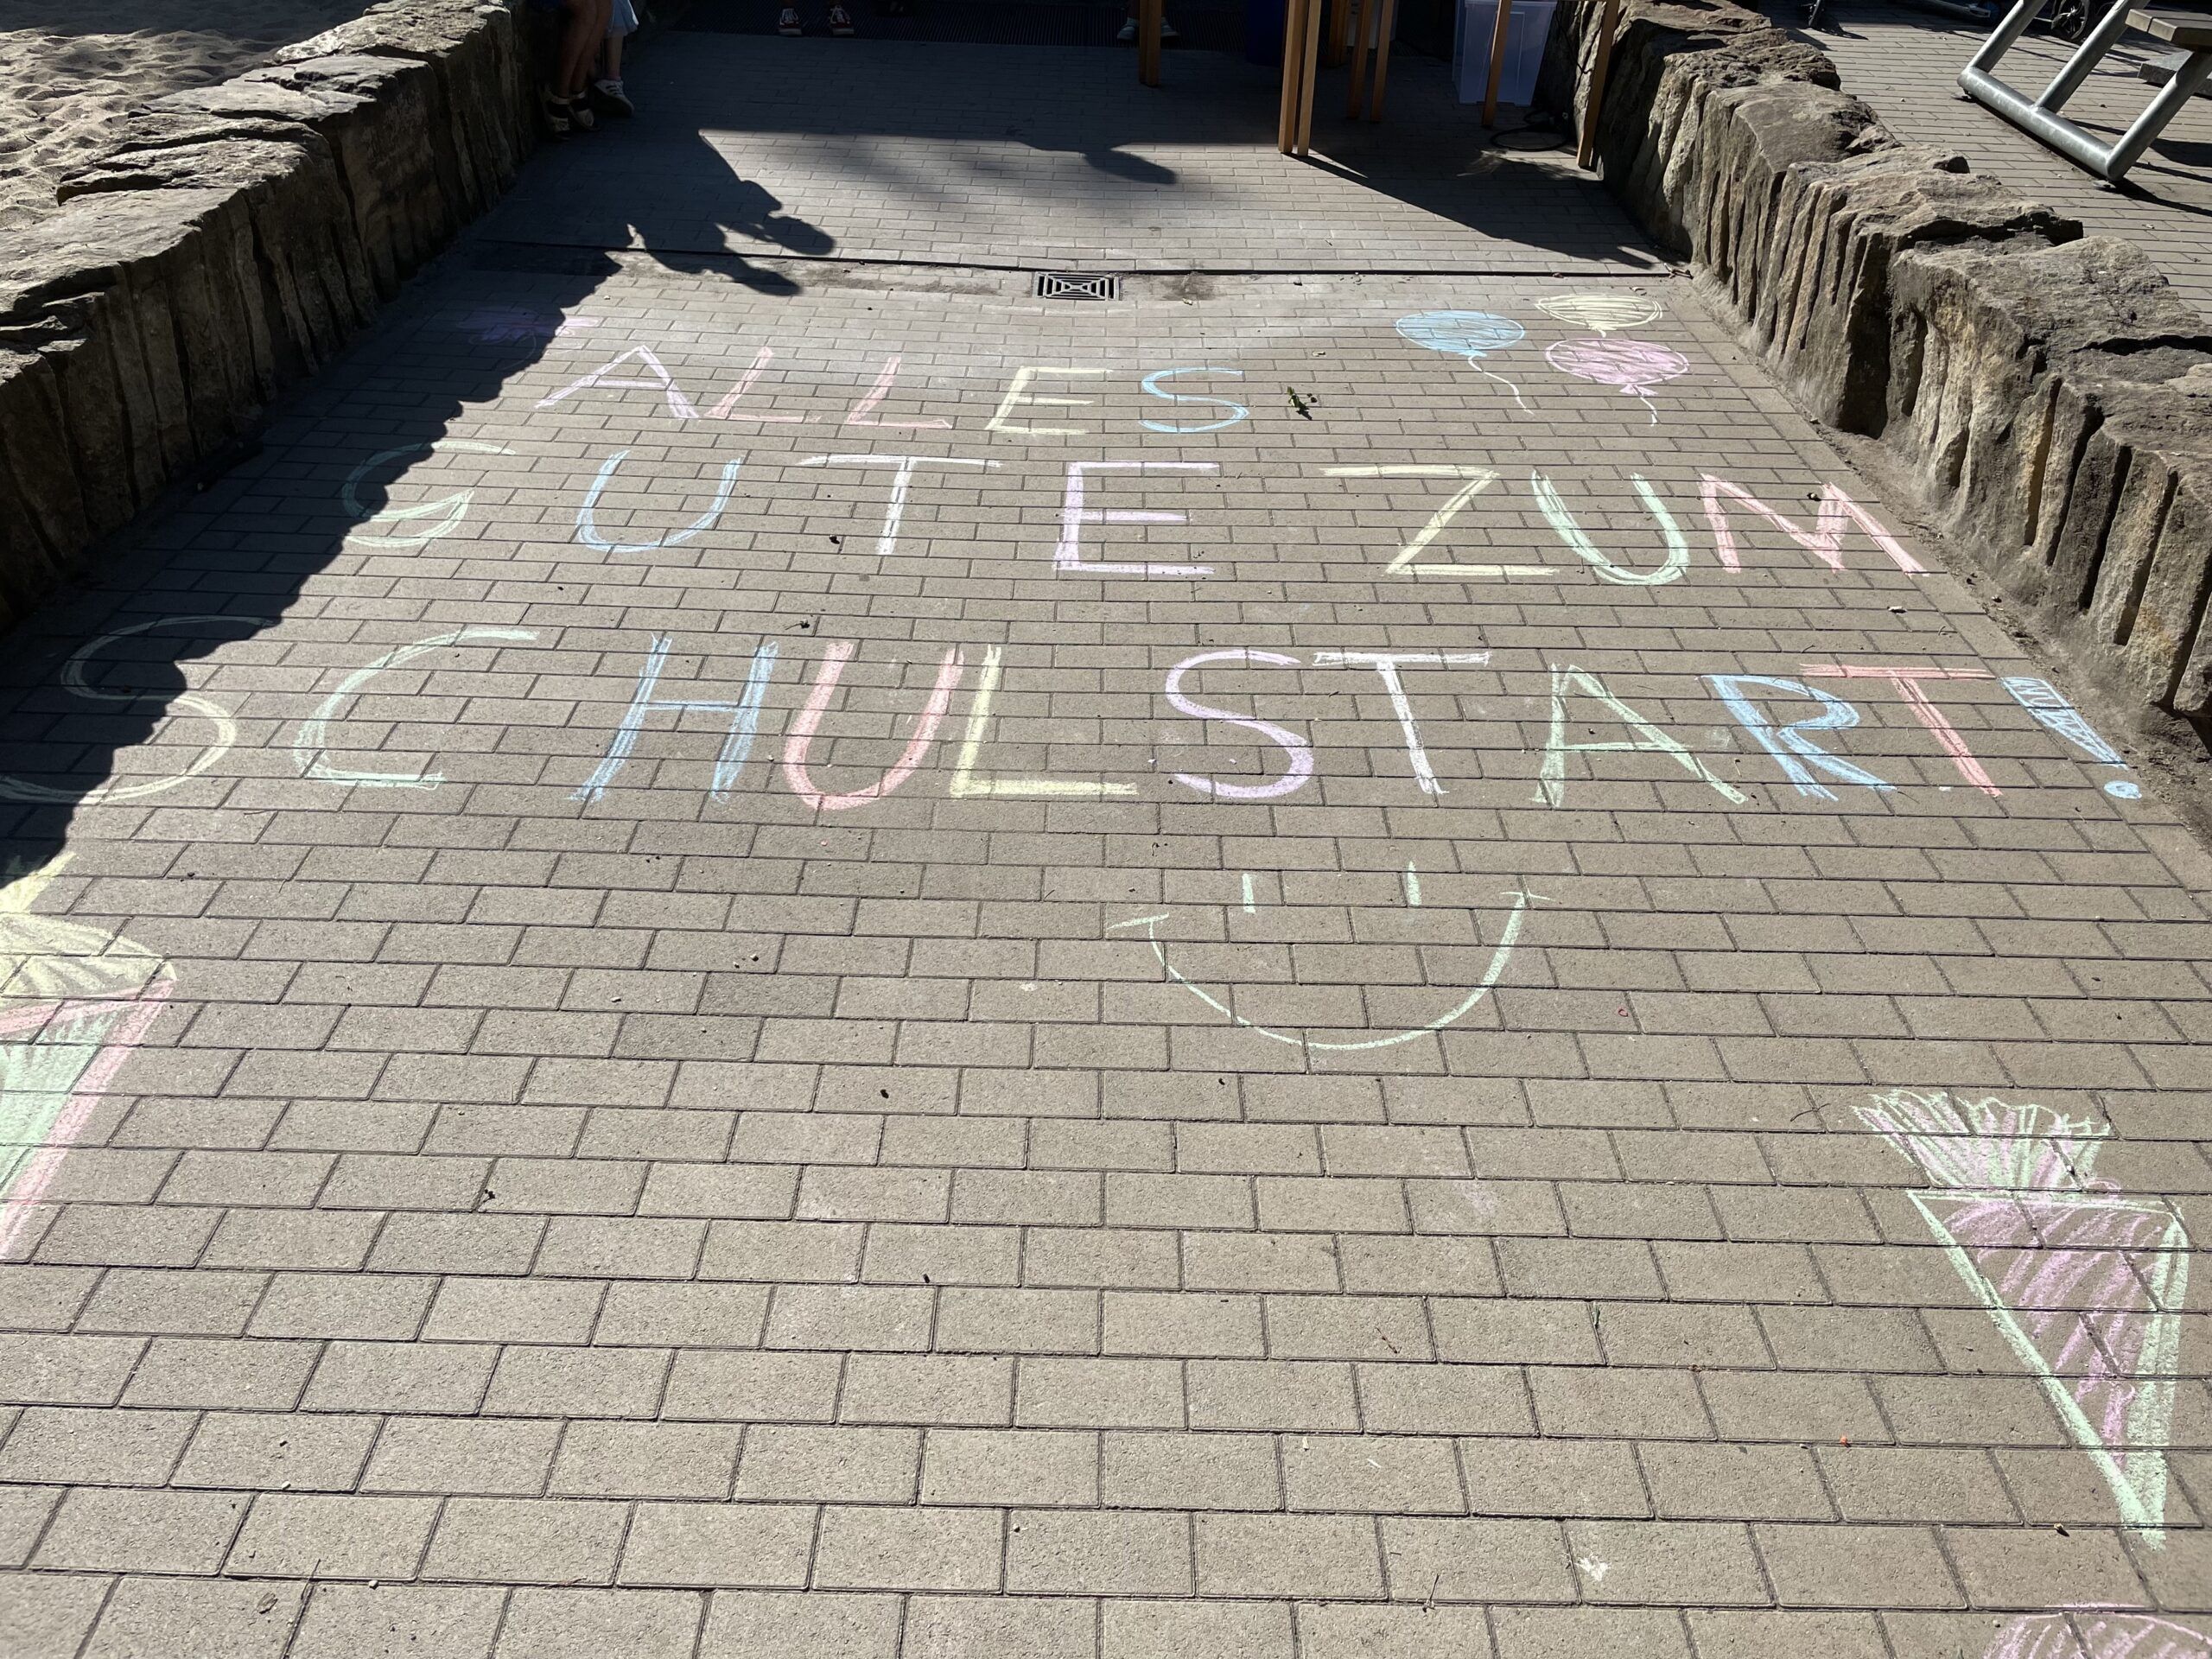 ALLES
GUTE ZUM
SCHULSTART!